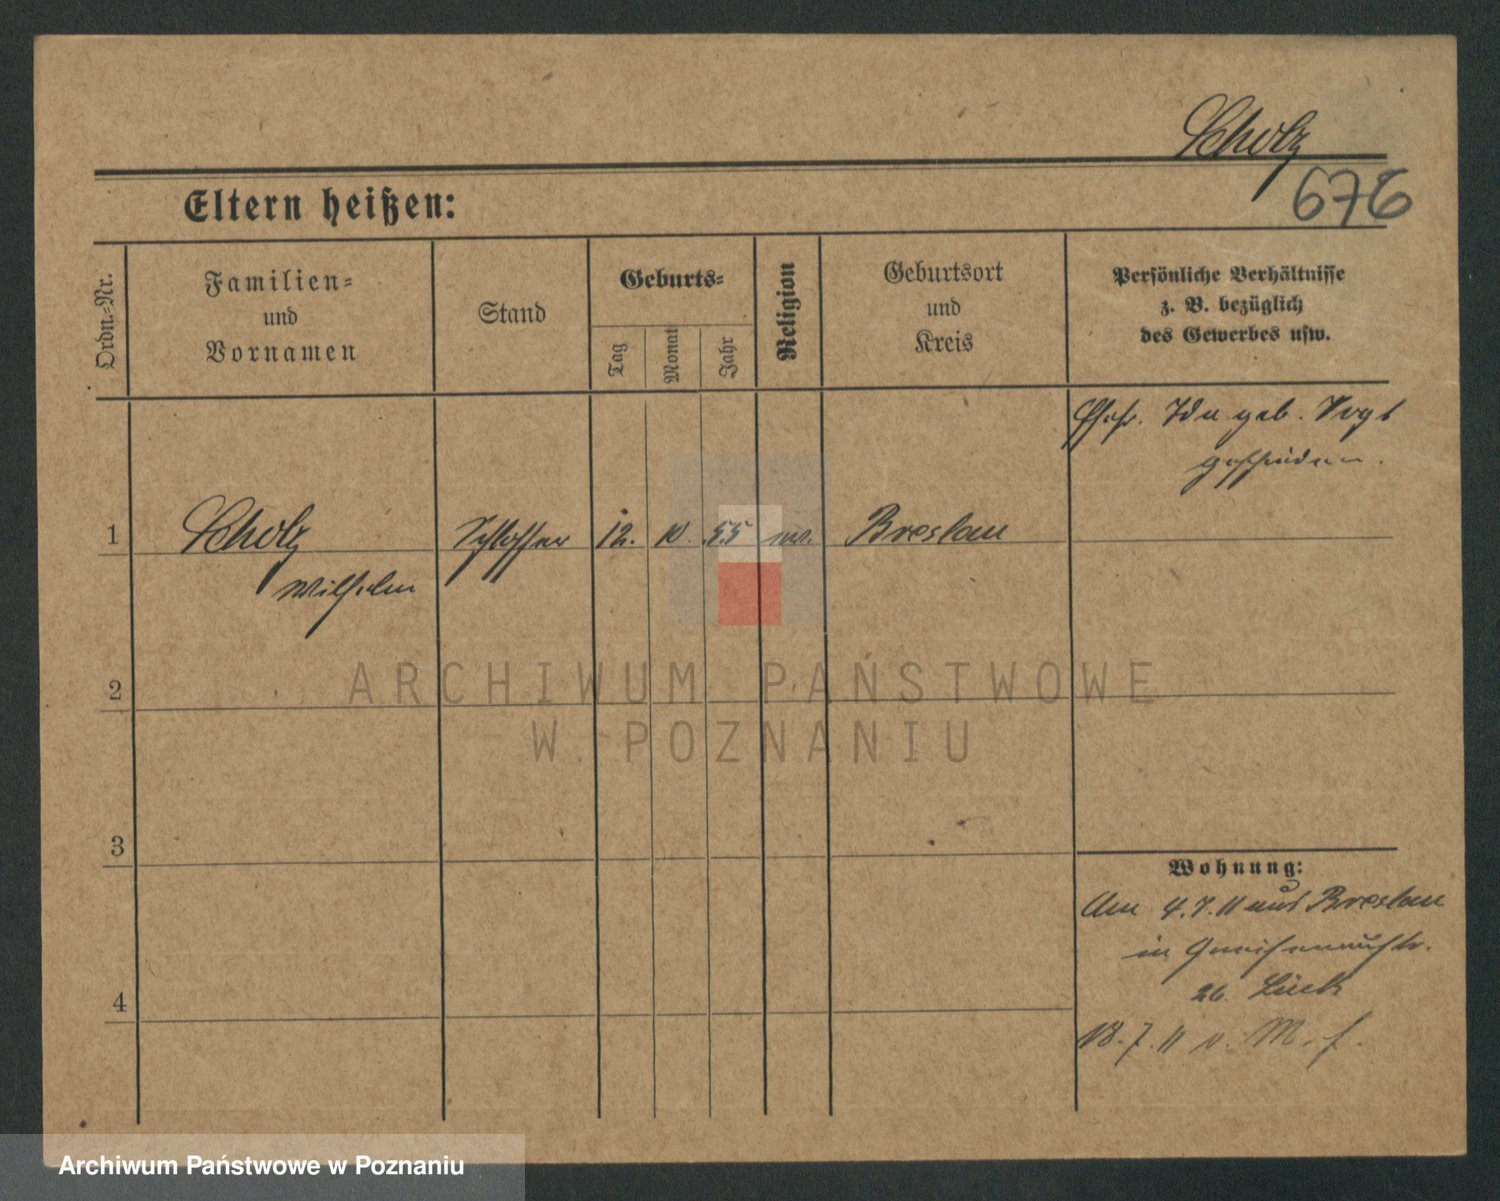 Scholz
676
Eltern heißen:
Ordn.-Nr.
Familien-
und
Vornamen
Stand
Geburts-
Tag
Monat
Jahr
Religion
Geburtsort
und
Kreis
Persönliche Verhältnisse
z. B. bezüglich
des Gewerbes usw.
Ida geb. Vogt
geschieden.
1 Scholz Schlosser 12. 10. 55 ev. Breslau
Wilhelm
2
3
4
Wohnung:
Am 4.7.11 aus Breslau
in Gneisenaustr.
26. Lück
18.7.11 v. M. f.
ARCHIWUM PAŃSTWOWE
W POZNANIU
Archiwum Państwowe w Poznaniu